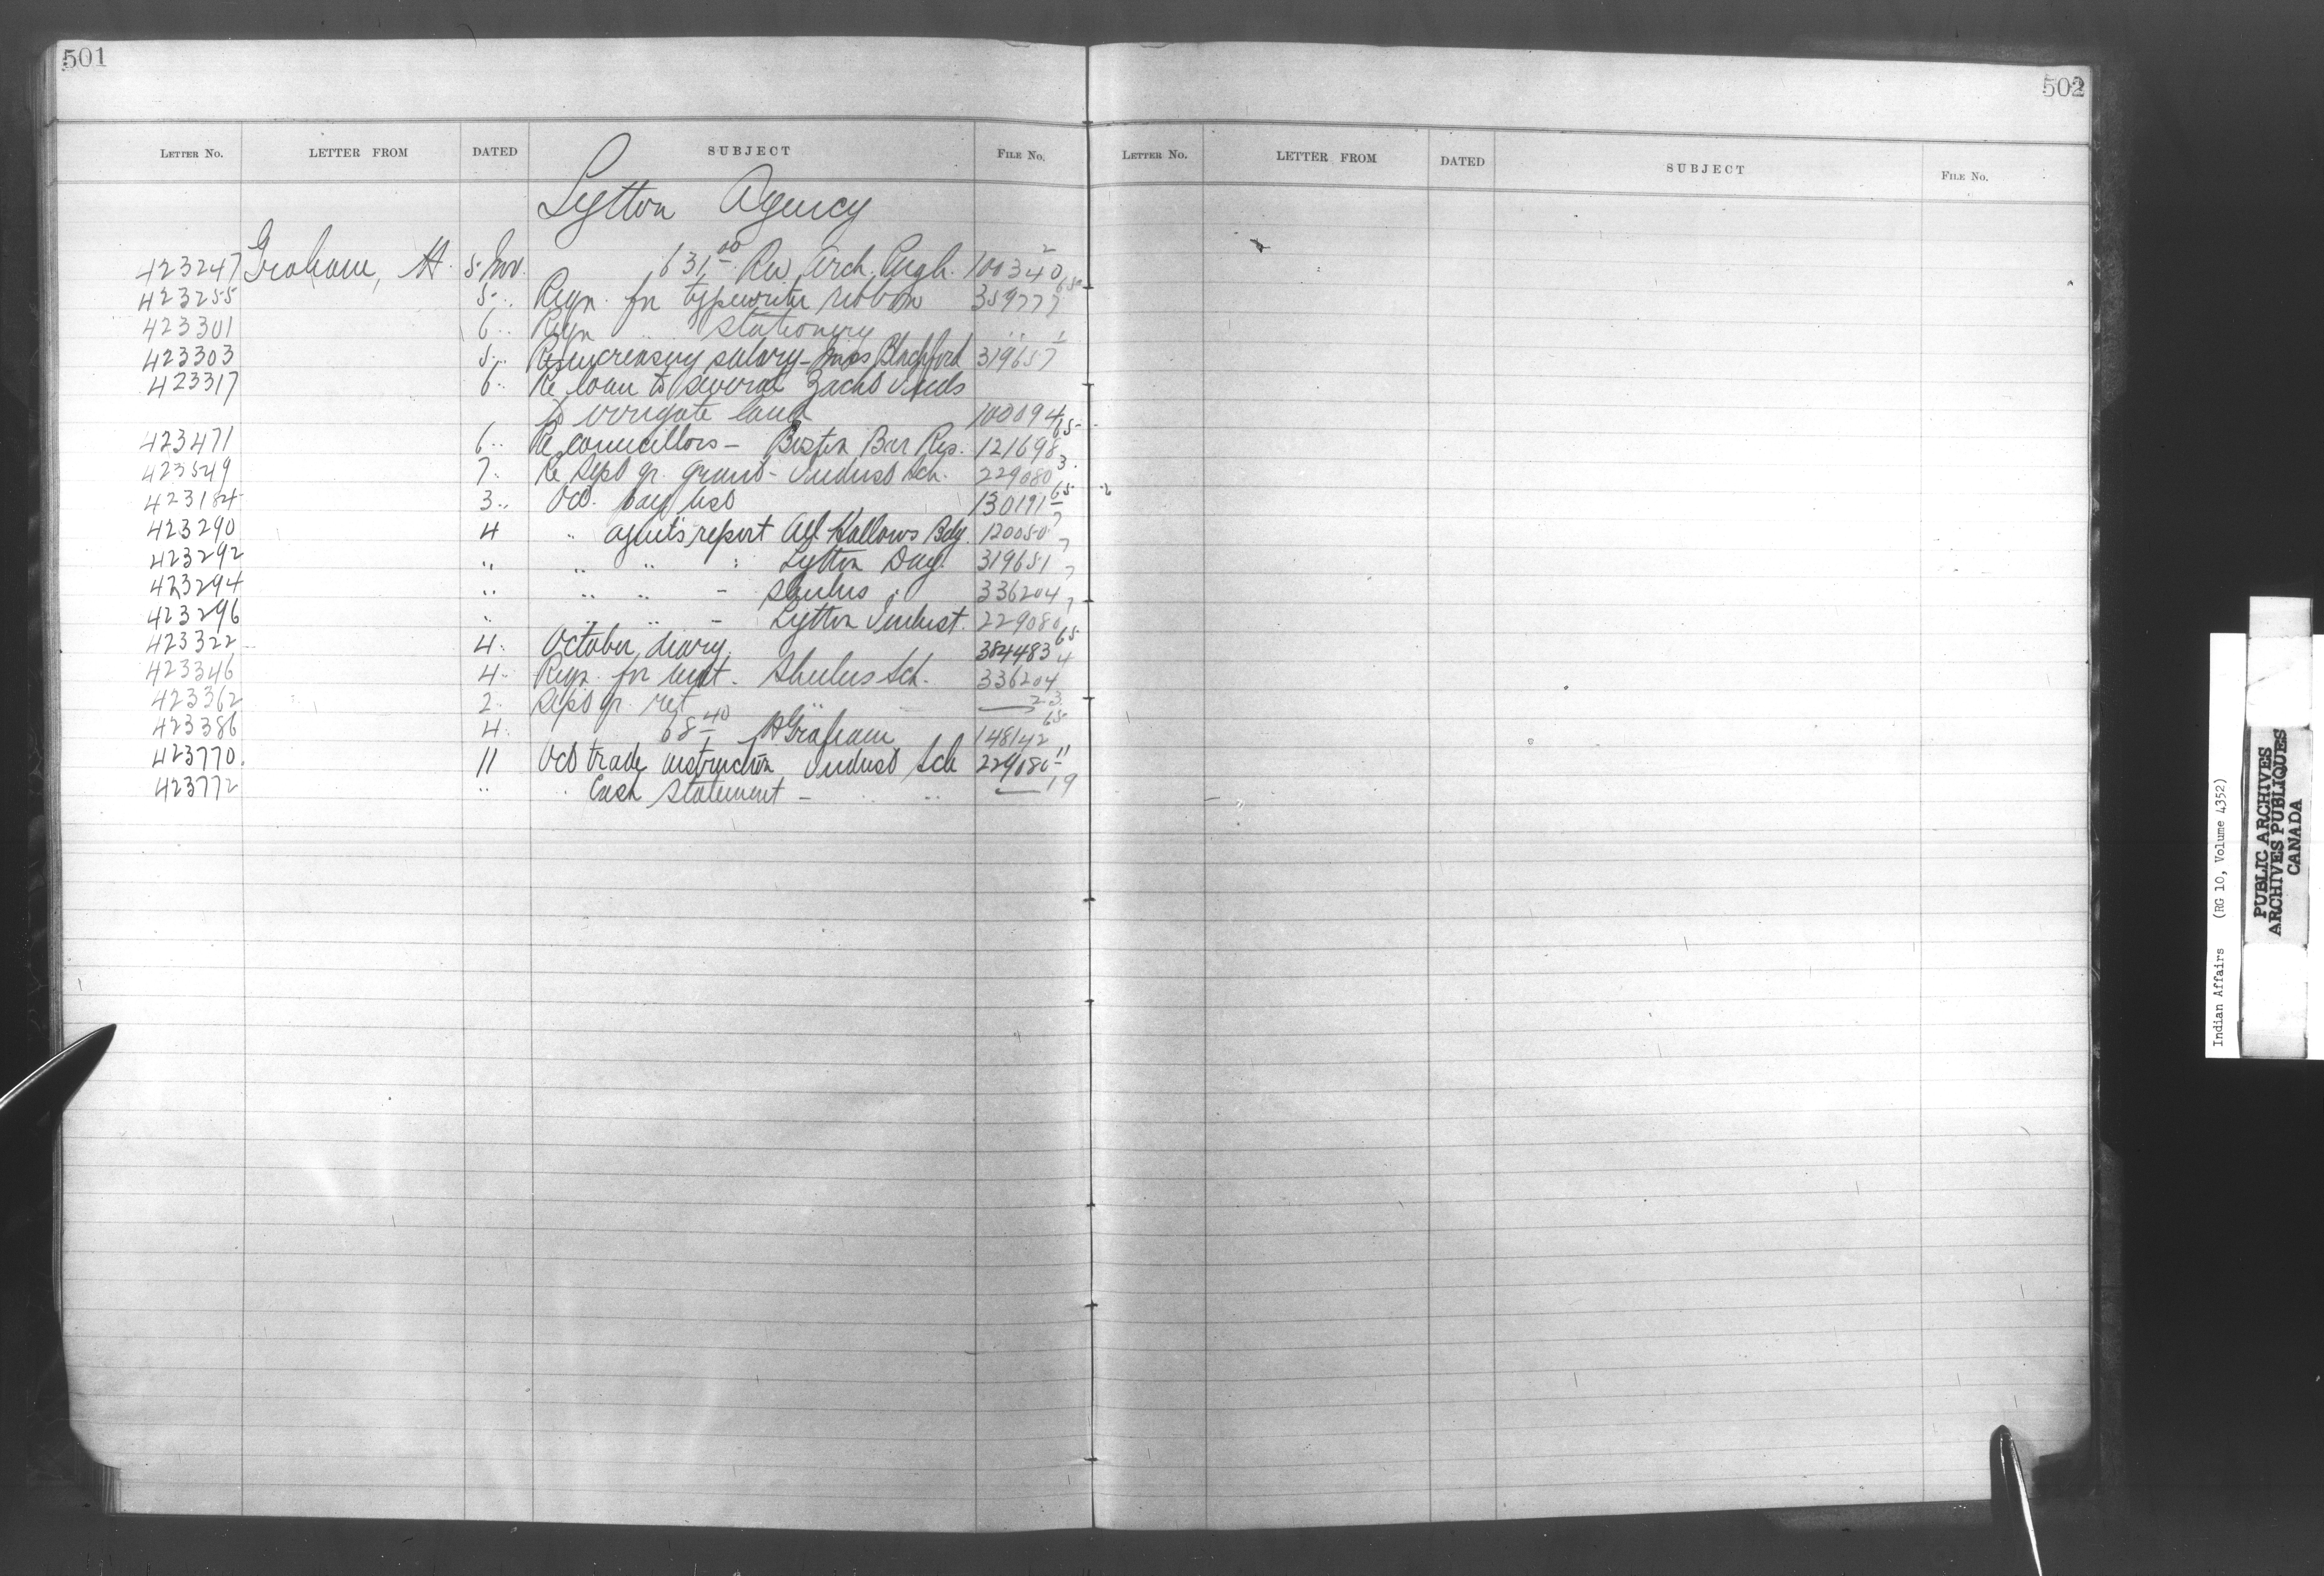 501
LETTER No. LETTER FROM DATED SUBJECT FILE No.
Lytton Agency
423247 Graham, H. 5 Nov. 631.00 Rev Arch. Pugh. 100340 2
423255 5 " Reqn. for typewriter ribbon 359777 65
423301 6 " Reqn " stationery " " 1
423303 5 " Re increasing salary - Miss Blachford 319657
423317 6 " Re loan to several Zacht Inds
to irrigate land 100094
423471 6 " Re councillors - Boston Bar Res. 121698 65
423549 7 " Re Sept qr. grant - Indust Sch. 229080 3
423184 3 " Oct. pay list 130191 65
423290 4 " agent's report All Hallows Bdg. 120050 7
423292 " " " " Lytton Day 319651 7
423294 " " " - Shulus " 336204 7
423296 " " " - Lytton Indust. 229080
423322 4 " October diary 384483 65
423346 4 " Reqn. for Shulus Sch. 336204 4
423362 2 " Sept qr. ret " — 23
423386 4 " 68.40 H Graham 148142 65
423770 11 Oct trade instruction Indust Sch 229080 11
423772 " " Cash Statement - " " — 19
502
LETTER No. LETTER FROM DATED SUBJECT FILE No.
Indian Affairs (RG 10, Volume 4352)
PUBLIC ARCHIVES
ARCHIVES PUBLIQUES
CANADA